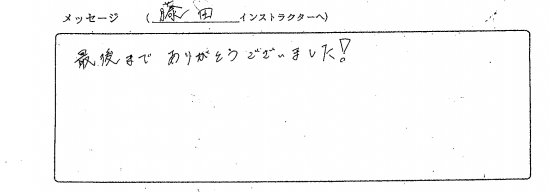 メッセージ （藤田インストラクターへ）
最後まで ありがとうございました！